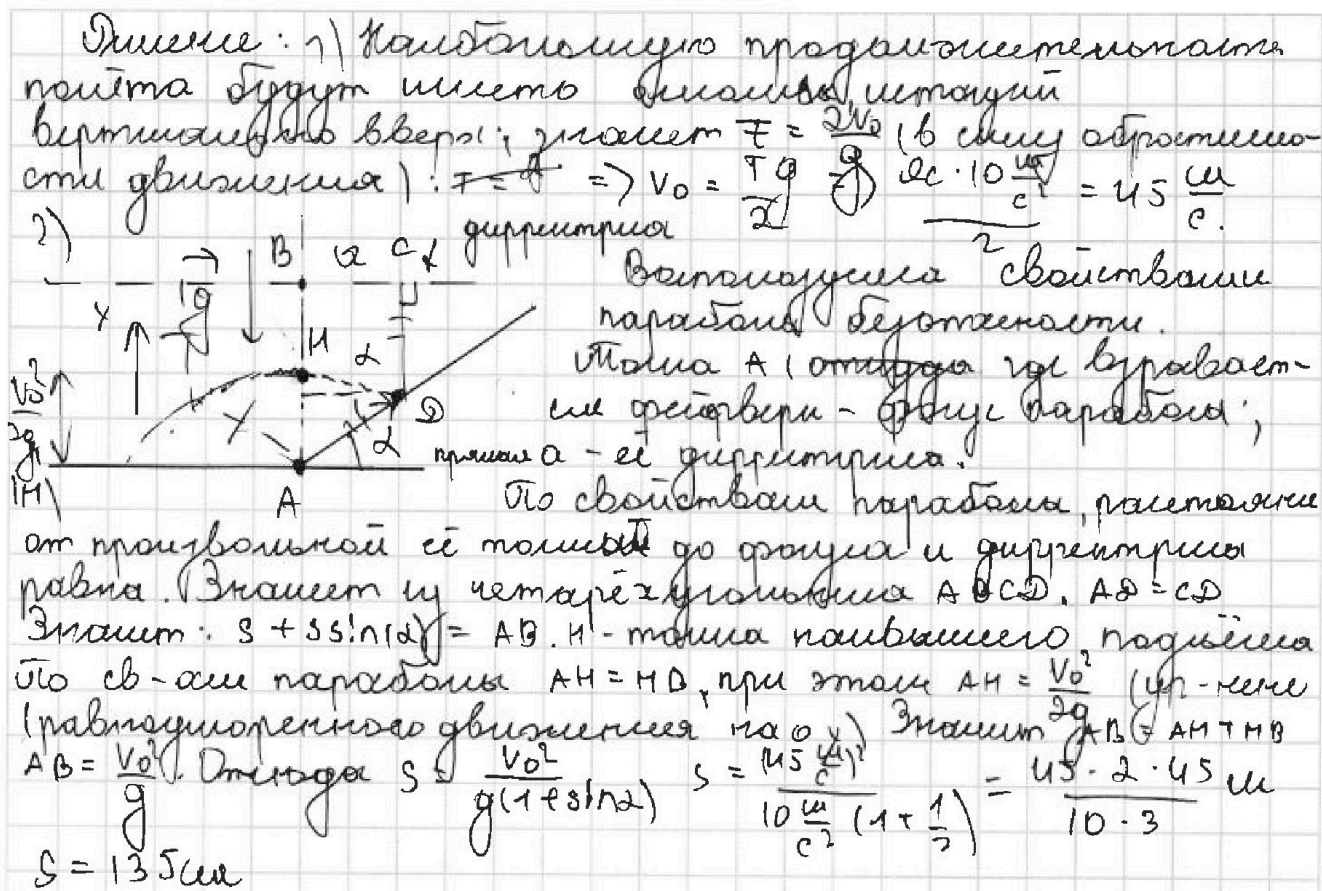 Решение: 1) Наибольшую продолжительность
полёта будут иметь осколки, летящий
вертикально вверх, значит T = 2V₀/g (в силу обратимо-
сти движения): => V₀ = Tg/2 = 9с·10 м/с² / 2 = 45 м/с.
2) директриса
B a C
Y g
H α
D
V₀²/2g
(H)
α
A
Воспользуемся свойствами
параболы безопасности.
Точка A (откуда где взрывает-
ся фейерверк - фокус параболы;
прямая a - её директриса.
По свойствам параболы, расстояние
от произвольной её точки до фокуса и директрисы
равна. Значит из четырёхугольника ABCD, AD = CD
Значит: S + S sin(α) = AB. H - точка наивысшего подъёма
По св-ам параболы AH = HB, при этом AH = V₀²/2g (ур-нене
равноускоренного движения на oy) Значит AB = AH + HB
AB = V₀²/g. Отсюда S = V₀²/g(1+sinα) S = (45 м/с)²/10 м/с² (1+1/2) = 45·2·45/10·3 м
S = 135м